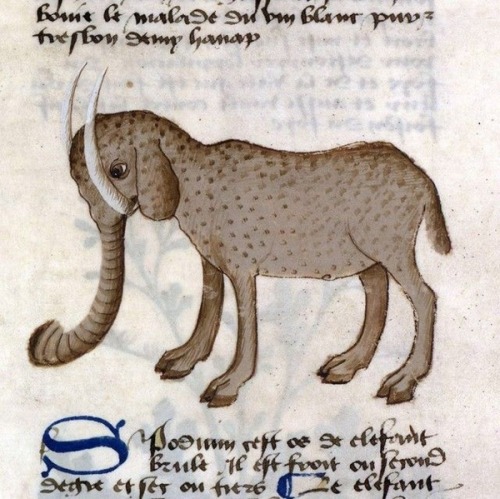 boire le malade du vin blanc puy=
tresbon demy hanap
Spodium cest os de elefant
brule Il est froit ou second
degre et sec ou tiers Le elefant